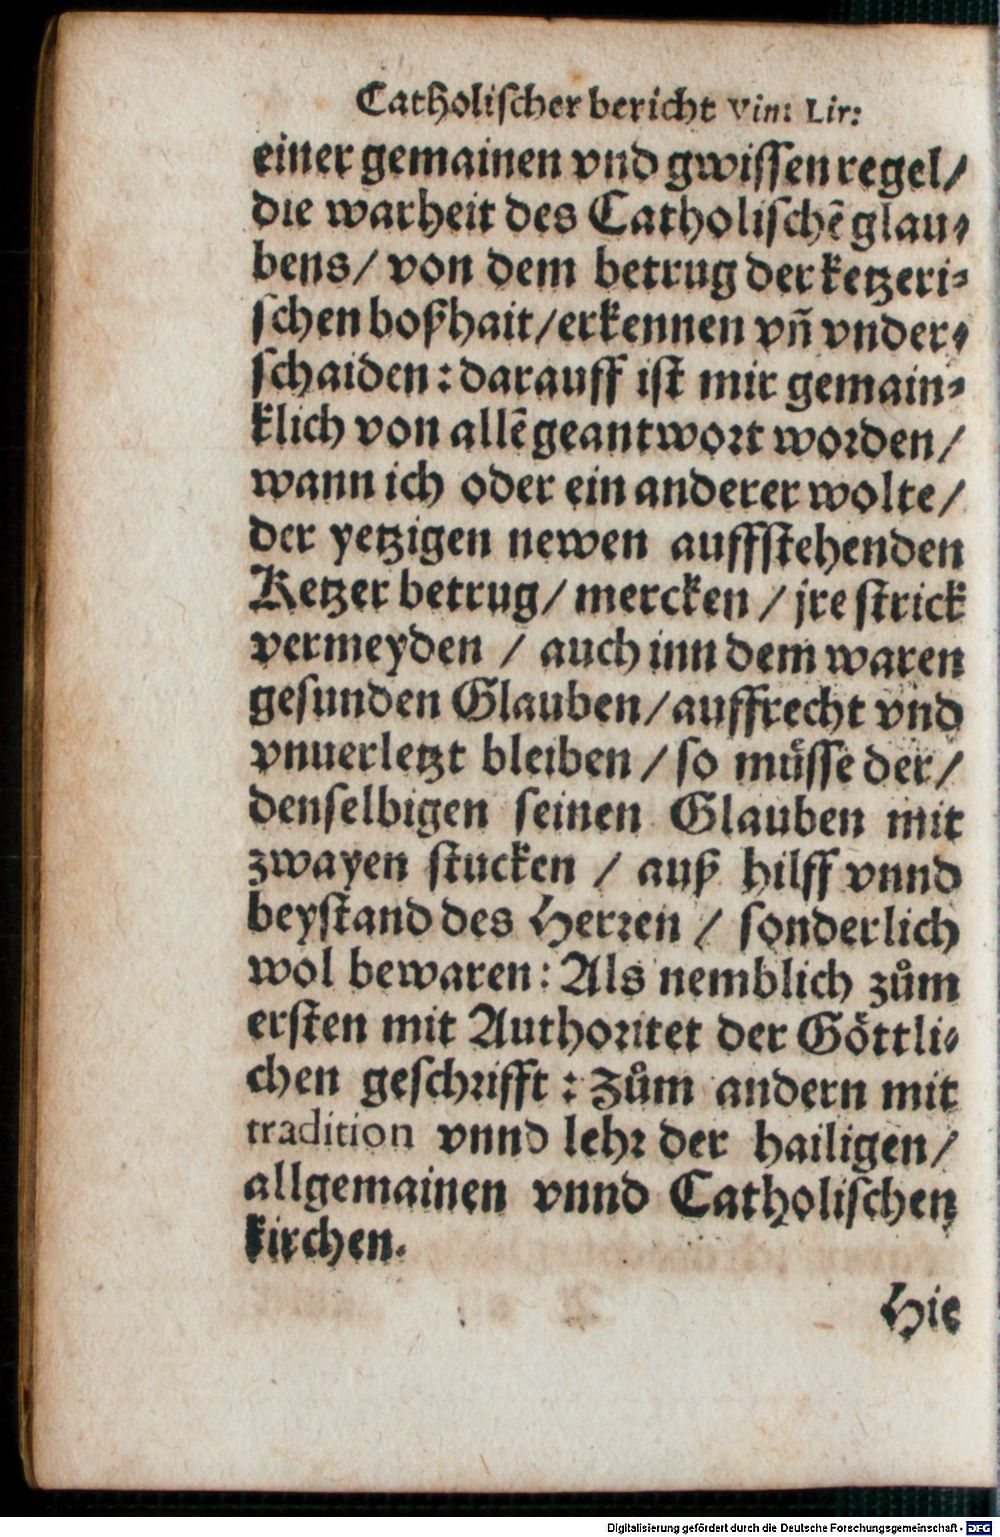 Catholischer bericht Vin: Lir:
einer gemainen vnd gwissen regel/
die warheit des Catholischē glau⸗
bens/ von dem betrug der ketzeri⸗
schen boßhait/erkennen vñ vnder⸗
schaiden: darauff ist mir gemain⸗
klich von allē geantwort worden/
wann ich oder ein anderer wolte/
der yetzigen newen auffstehenden
Ketzer betrug/ mercken / jre strick
vermeyden / auch inn dem waren
gesunden Glauben/auffrecht vnd
vnuerletzt bleiben / so muͤsse der/
denselbigen seinen Glauben mit
zwayen stucken / auß hilff vnnd
beystand des Herren / sonderlich
wol bewaren: Als nemblich zům
ersten mit Authoritet der Goͤttli⸗
chen geschrifft : Zům andern mit
tradition vnnd lehr der hailigen/
allgemainen vnnd Catholischen
kirchen.
Hie
Digitalisierung gefördert durch die Deutsche Forschungsgemeinschaft - DFG